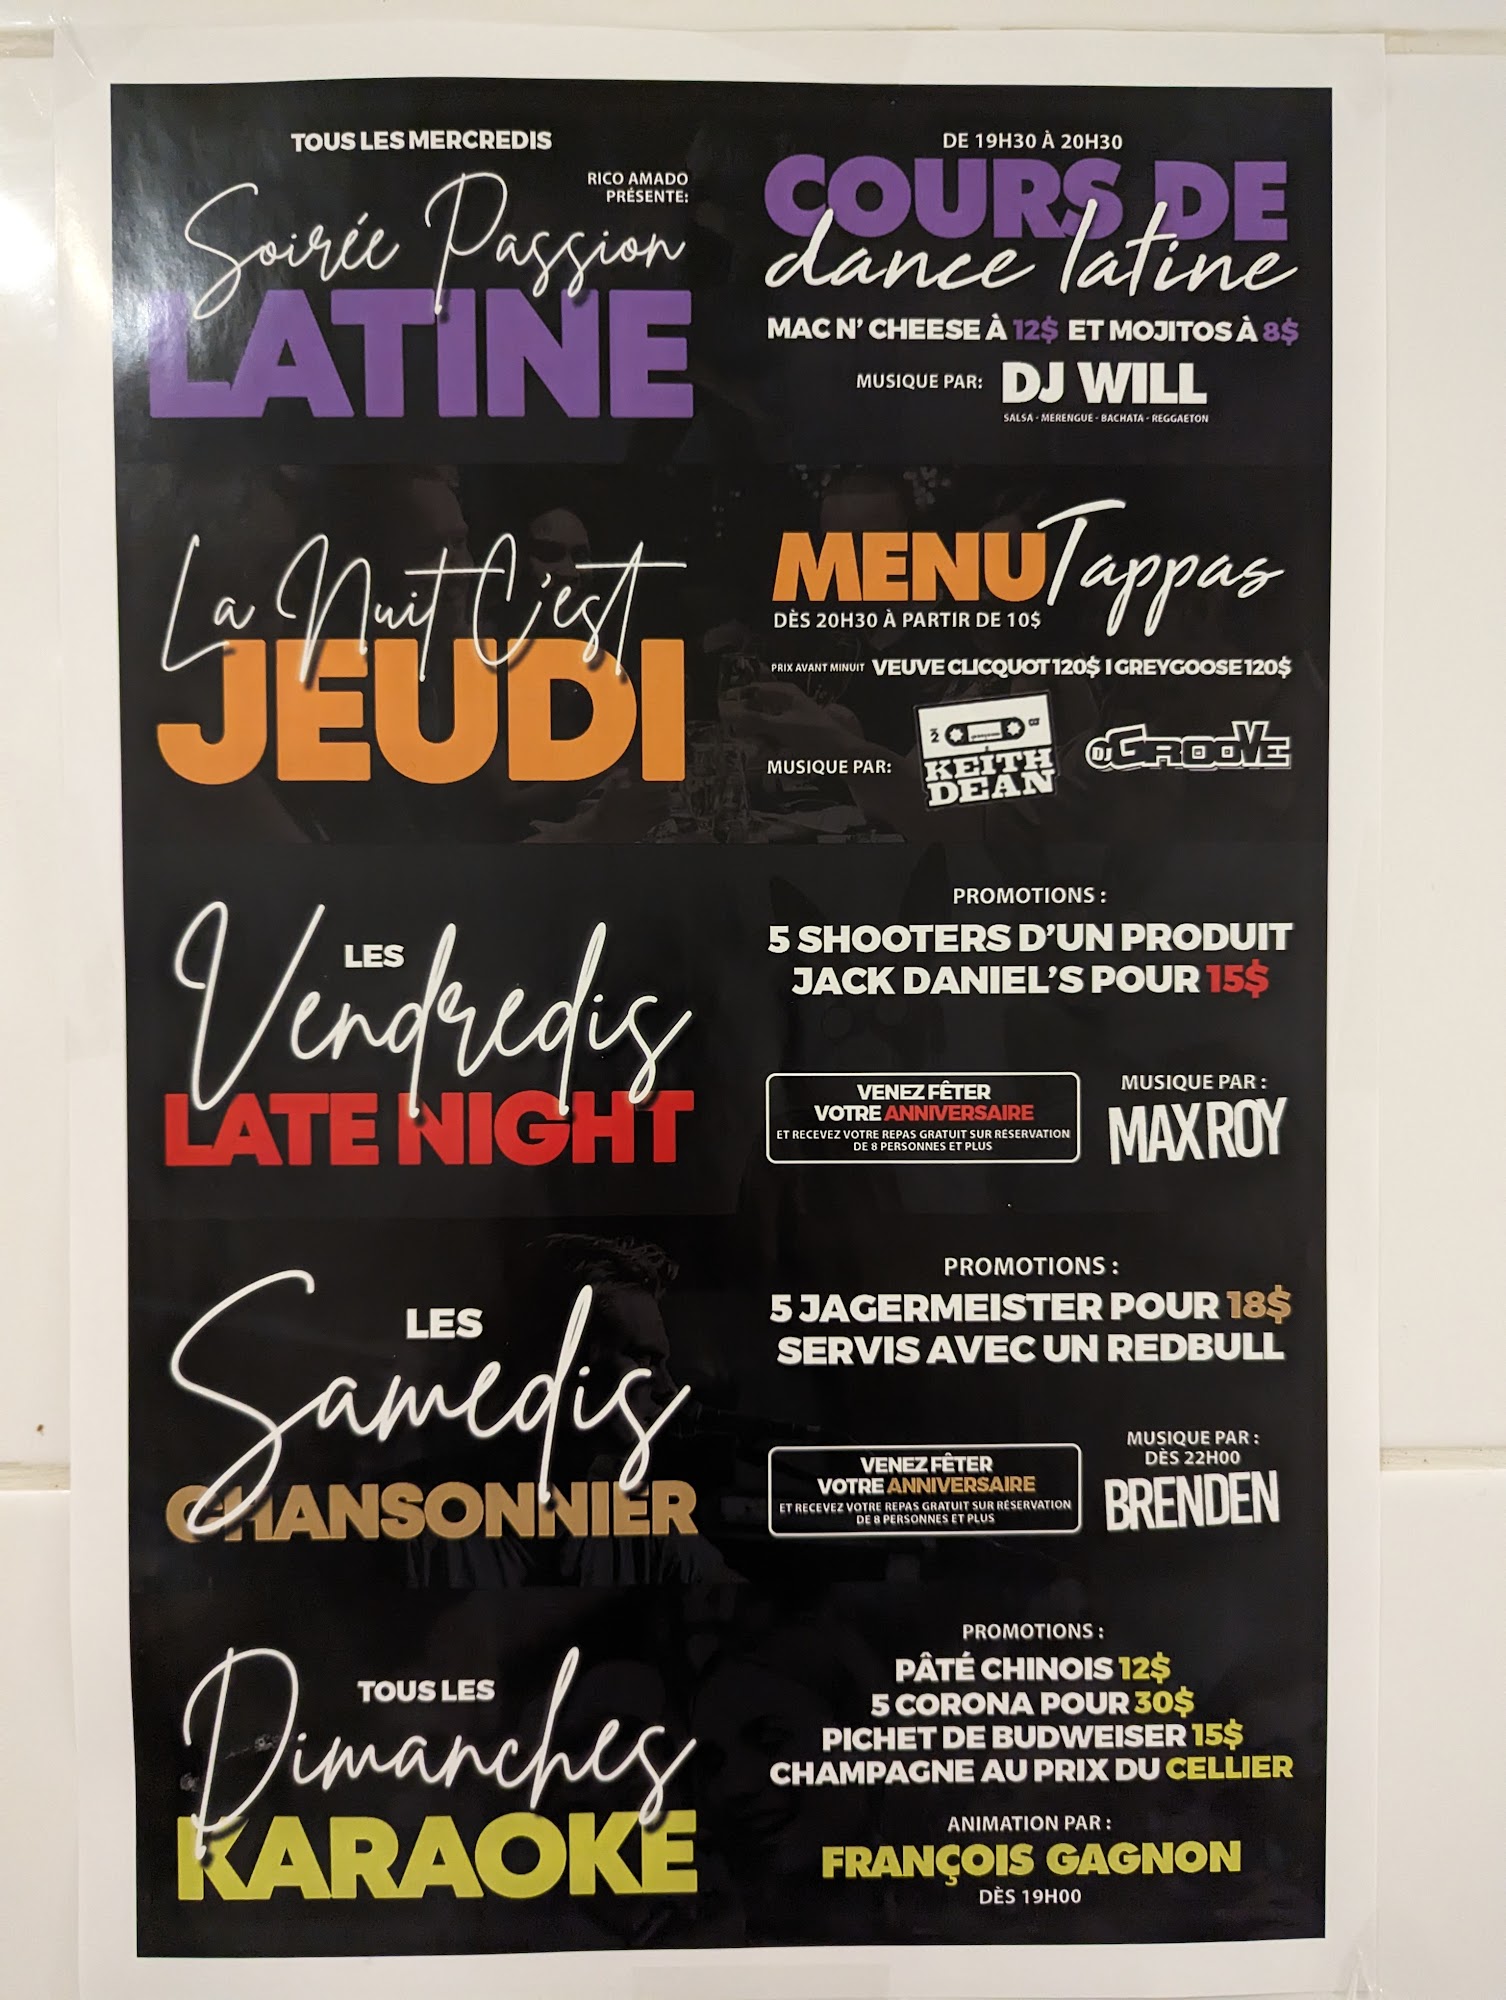 TOUS LES MERCREDIS
RICO AMADO
PRÉSENTE:
Soirée Passion
LATINE
DE 19H30 À 20H30
COURS DE
dance latine
MAC N' CHEESE À 12$ ET MOJITOS À 8$
MUSIQUE PAR: DJ WILL
SALSA - MERENGUE - BACHATA - REGGAETON
La Nuit C'est
JEUDI
MENU Tappas
DÈS 20H30 À PARTIR DE 10$
PRIX AVANT MINUIT VEUVE CLICQUOT 120$ I GREYGOOSE 120$
MUSIQUE PAR:
2
KEITH
DEAN
DJ GROOVE
LES
Vendredis
LATE NIGHT
PROMOTIONS :
5 SHOOTERS D'UN PRODUIT
JACK DANIEL'S POUR 15$
VENEZ FÊTER
VOTRE ANNIVERSAIRE
ET RECEVEZ VOTRE REPAS GRATUIT SUR RÉSERVATION
DE 8 PERSONNES ET PLUS
MUSIQUE PAR :
MAX ROY
LES
Samedis
CHANSONNIER
PROMOTIONS :
5 JAGERMEISTER POUR 18$
SERVIS AVEC UN REDBULL
VENEZ FÊTER
VOTRE ANNIVERSAIRE
ET RECEVEZ VOTRE REPAS GRATUIT SUR RÉSERVATION
DE 8 PERSONNES ET PLUS
MUSIQUE PAR :
DÈS 22H00
BRENDEN
TOUS LES
Dimanches
KARAOKE
PROMOTIONS :
PÂTÉ CHINOIS 12$
5 CORONA POUR 30$
PICHET DE BUDWEISER 15$
CHAMPAGNE AU PRIX DU CELLIER
ANIMATION PAR :
FRANÇOIS GAGNON
DÈS 19H00